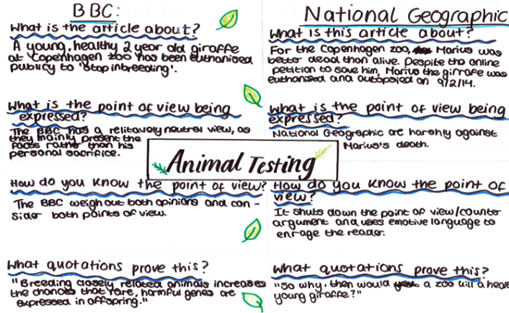 BBC:
What is the article about?
A young, healthy 2 year old giraffe
at Copenhagen zoo has been euthanised
publicly to 'stop inbreeding'.
What is the point of view being
expressed?
The BBC has a relitavely neutral view, as
they mainly present the
facts rather than his
personal sacrifice.
How do you know the point of view?
The BBC weigh out both opinions and con-
sider both points of view.
What quotations prove this?
"Breeding closely related animals increases
the chances that rare, harmful genes are
expressed in offspring."
Animal Testing
National Geographic
What is this article about?
For the Copenhagen zoo, Marius was
better dead than alive. Despite the online
petition to save him, Marius the girraffe was
euthanised and autopsied on 9/2/14.
What is the point of view being
expressed?
National Geographic are harshly against
Marius's death.
How do you know the point of
view?
It shuts down the point of view/counter
argument and uses emotive language to
enrage the reader.
What quotations prove this?
"So why, then would a zoo kill a heal
young giraffe?"